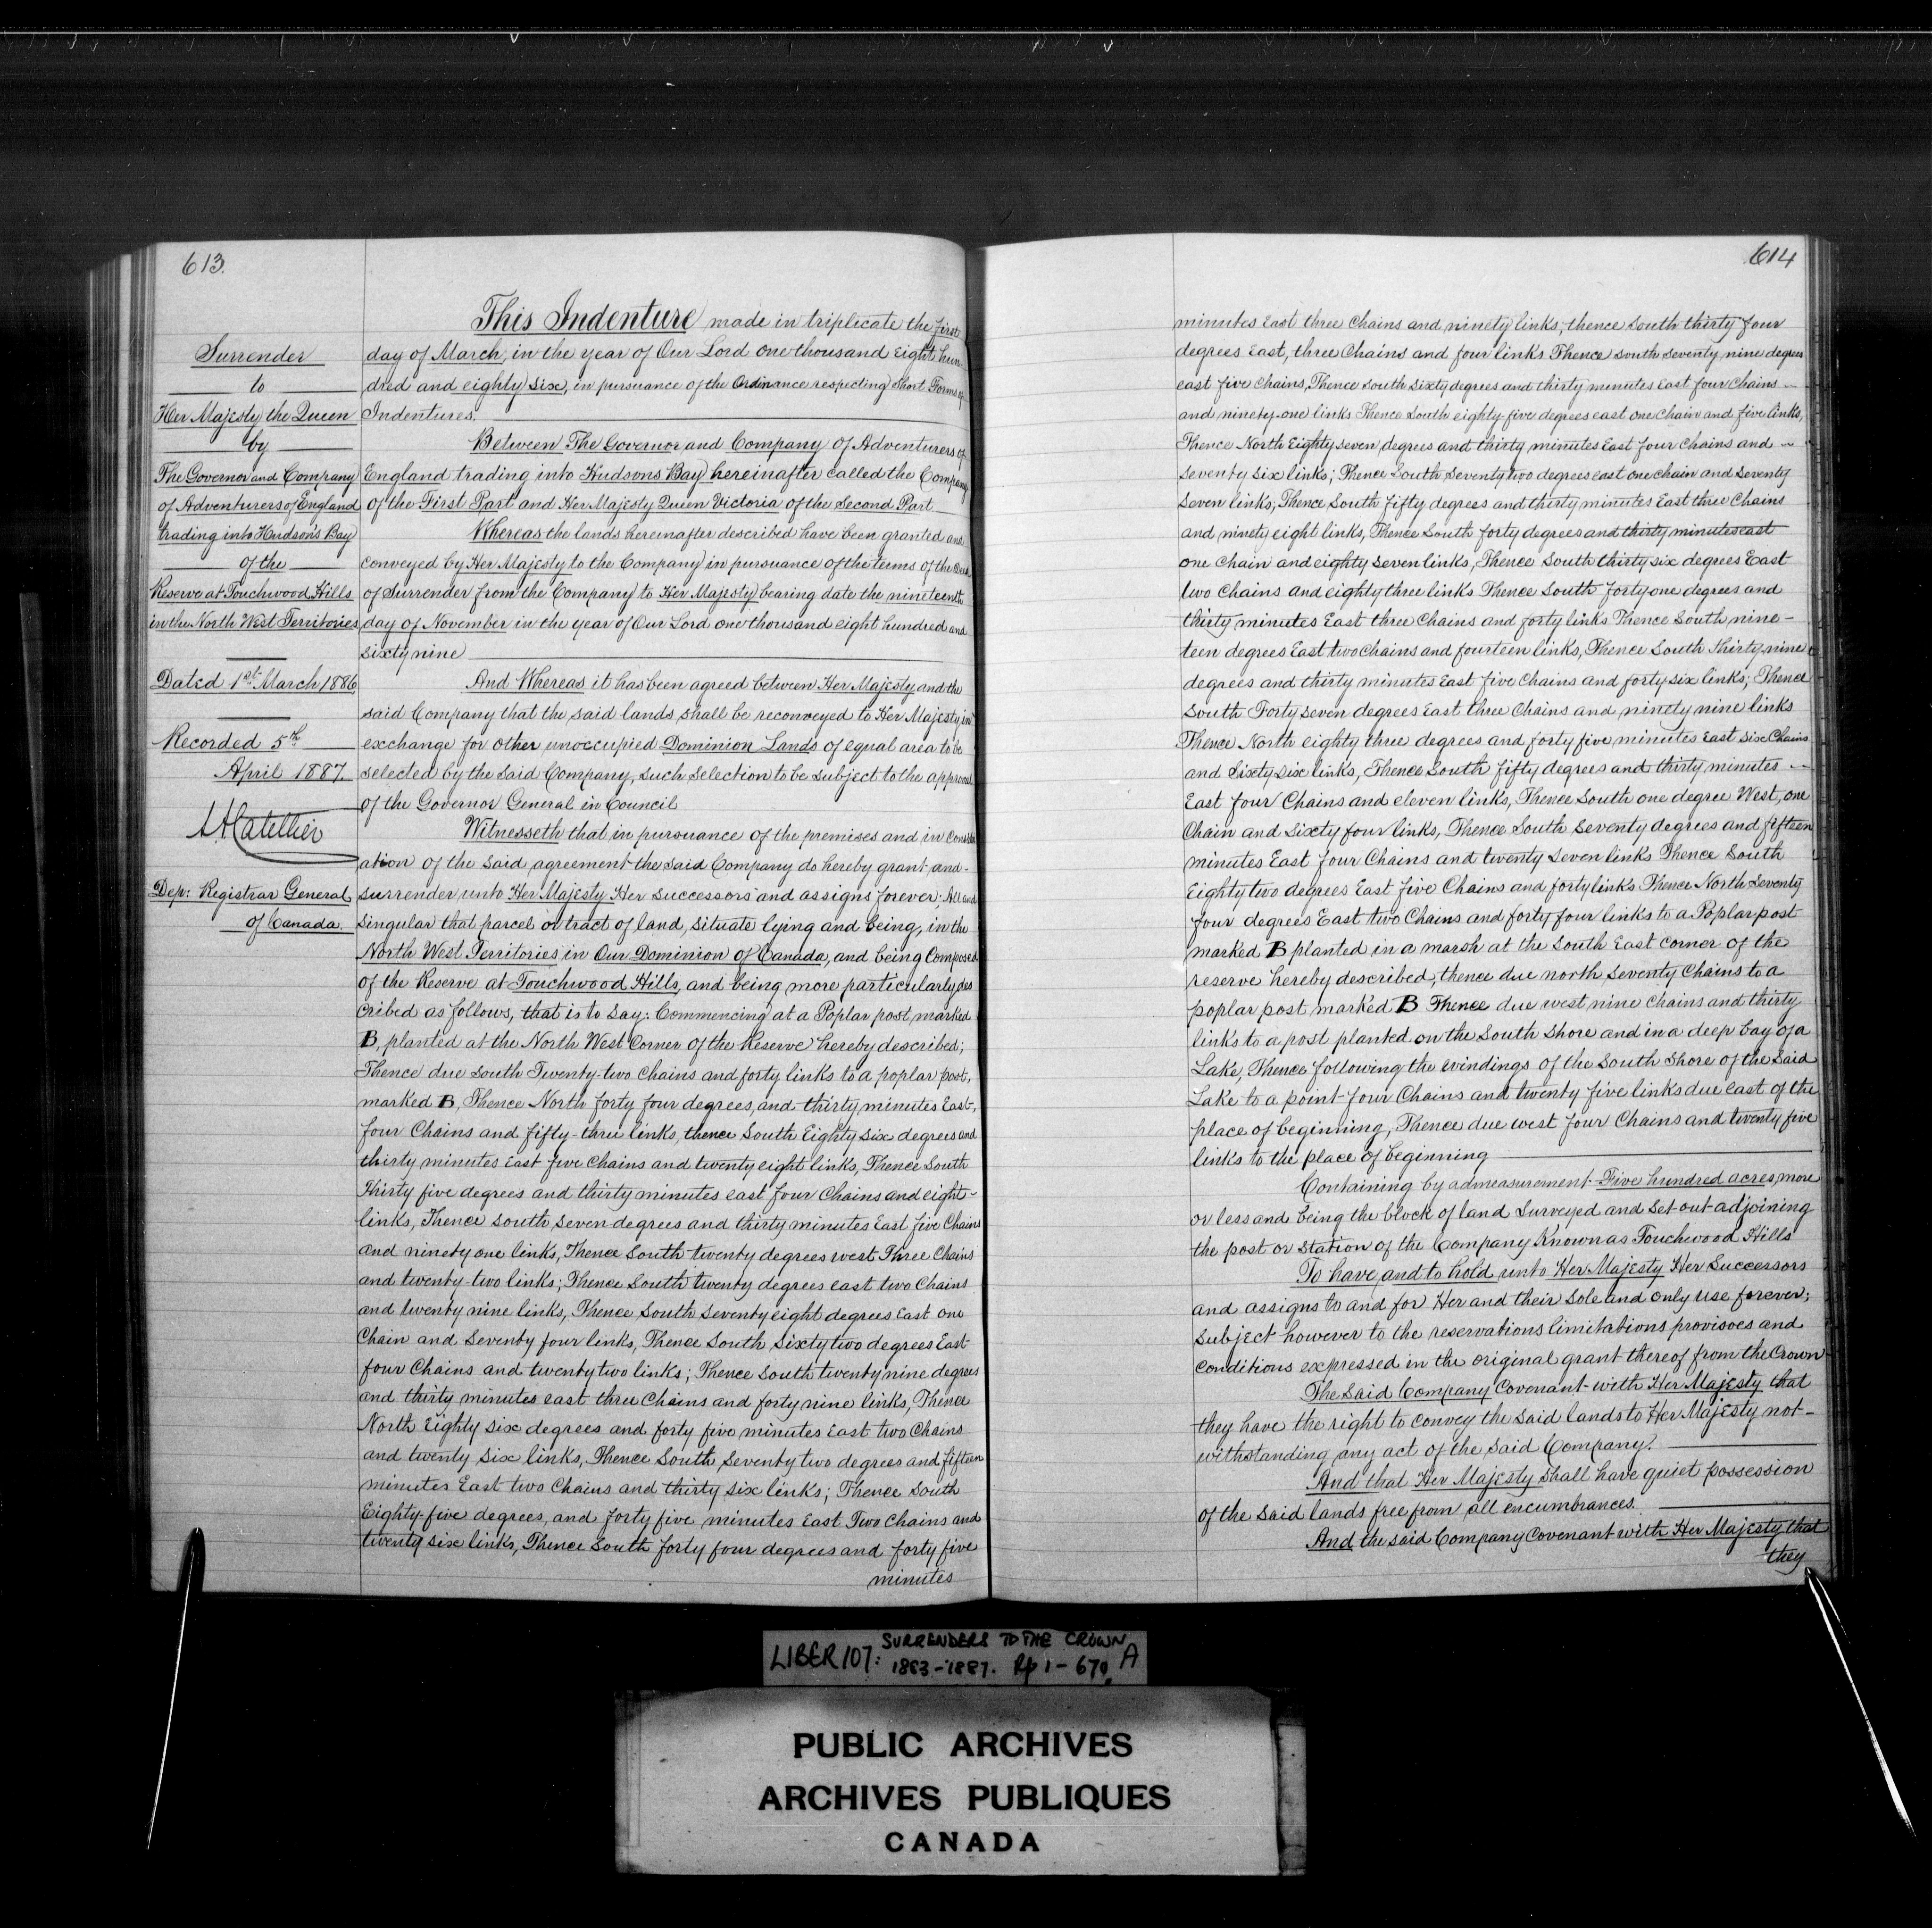 613.
Surrender
to
Her Majesty the Queen
by
The Governor and Company
of Adventurers of England
trading into Hudson's Bay
of the
Reserve at Touchwood Hills
in the North West Territories
Dated 1st March 1886
Recorded 5th
April 1887.
Dep: Registrar General
of Canada.
This Indenture made in triplicate the first
day of March, in the year of Our Lord one thousand Eight hun-
dred and eighty six, in pursuance of the Ordinance respecting Short Forms of
Indentures.
Between The Governor and Company of Adventurers of
England trading into Hudsons Bay hereinafter called the Company
of the First Part and Her Majesty Queen Victoria of the Second Part
Whereas the lands hereinafter described have been granted and
conveyed by Her Majesty to the Company in pursuance of the terms of the Deed
of Surrender from the Company to Her Majesty bearing date the nineteenth
day of November in the year of Our Lord one thousand eight hundred and
sixty nine
And Whereas it has been agreed between Her Majesty and the
said Company that the said lands shall be reconveyed to Her Majesty in
exchange for other unoccupied Dominion Lands of equal area to be
selected by the said Company, such selection to be subject to the approval
of the Governor General in Council
Witnesseth that in pursuance of the premises and in consider
ation of the said agreement the said Company do hereby grant and-
surrender unto Her Majesty Her successors and assigns forever: All and
Singular that parcel or tract of land, situate lying and being, in the
North West Territories in Our Dominion of Canada, and being Composed
of the Reserve at Touchwood Hills, and being more particularly des
cribed as follows, that is to say: Commencing at a Poplar post marked
B, planted at the North West Corner of the Reserve hereby described;
Thence due south Twenty-two Chains and forty links to a poplar post,
marked B, Thence North forty four degrees, and thirty minutes East,
four Chains and fifty-three links, thence South Eighty six degrees and
thirty minutes East five Chains and twenty eight links, Thence South
Thirty five degrees and thirty minutes east four Chains and eight-
links, Thence South seven degrees and thirty minutes East five Chains
and ninety one links, Thence South twenty degrees west Three Chains
and twenty-two links; Thence South twenty degrees east two Chains
and twenty nine links, Thence South Seventy eight degrees East one
Chain and Seventy four links, Thence South Sixty two degrees East
four Chains and twenty two links; Thence South twenty nine degrees
and thirty minutes east three Chains and forty nine links, Thence
North Eighty six degrees and forty five minutes East two Chains
and twenty Six links, Thence South Seventy two degrees and fifteen
minutes East two Chains and thirty six links; Thence South
Eighty-five degrees, and forty five minutes East Two Chains and
twenty six links, Thence South forty four degrees and forty five
minutes
614
minutes East three Chains and ninety links; thence South thirty four
degrees East, three Chains and four links Thence South Seventy nine degrees
east five Chains, Thence South Sixty degrees and thirty minutes East four Chains
and ninety-one links Thence South eighty-five degrees east one Chain and five links,
Thence North Eighty seven degrees and thirty minutes East four Chains and
seventy six links; Thence South Seventy two degrees east one chain and seventy
seven links, Thence South fifty degrees and thirty minutes East three Chains
and ninety eight links, Thence South forty degrees and thirty minutes east
one Chain and eighty seven links, Thence South thirty six degrees East
two Chains and eighty three links Thence South forty one degrees and
thirty minutes East three Chains and forty links Thence South nine-
teen degrees East two Chains and fourteen links, Thence South Thirty nine
degrees and thirty minutes East five Chains and forty six links; Thence
South Forty seven degrees East three Chains and ninety nine links
Thence North eighty three degrees and forty five minutes East six Chains
and Sixty six links, Thence South fifty degrees and thirty minutes
East four Chains and eleven links, Thence South one degree West, one
Chain and Sixty four links, Thence South Seventy degrees and fifteen
minutes East four Chains and twenty seven links Thence South
Eighty two degrees East five Chains and forty links Thence North Seventy
four degrees East two Chains and forty four links to a Poplar post
marked B planted in a marsh at the South East corner of the
reserve hereby described, thence due north Seventy Chains to a
poplar post marked B Thence due west nine Chains and thirty
links to a post planted on the South shore and in a deep bay of a
Lake, Thence following the windings of the South shore of the said
Lake to a point four Chains and twenty five links due east of the
place of beginning, Thence due west four Chains and twenty five
links to the place of beginning
Containing by admeasurement Five hundred acres, more
or less and being the block of land surveyed and set out adjoining
the post or station of the Company Known as Touchwood Hills
To have and to hold unto Her Majesty Her Successors
and assigns to and for Her and their sole and only use forever;
subject however to the reservations limitations provisoes and
conditions expressed in the original grant thereof from the Crown
The said Company Covenant with Her Majesty that
they have the right to convey the said lands to Her Majesty not-
withstanding any act of the said Company.
And that Her Majesty shall have quiet possession
of the said lands free from all encumbrances.
And the said Company Covenant with Her Majesty that
they
LIBER 107: SURRENDERS TO THE CROWN
1883-1887. Pp 1-670, A
PUBLIC ARCHIVES
ARCHIVES PUBLIQUES
CANADA